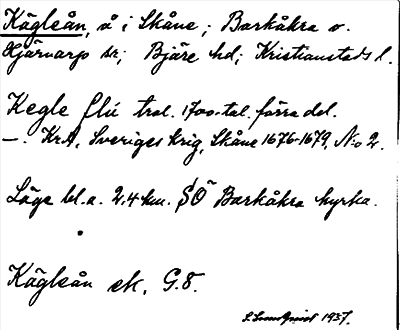 Kägleån, å i Skåne; Barkåkra o.
Hjärnarp sn; Bjäre hd; Kristianstads l.
Kegle flú trol. 1700-tal. förra del.
—. KrA, Sveriges krig, Skåne 1676-1679, N:o 2.
Läge bl.a. 2.4 km. SÖ Barkåkra kyrka.
Kägleån ek. G.8.
S. Lundquist 1937.